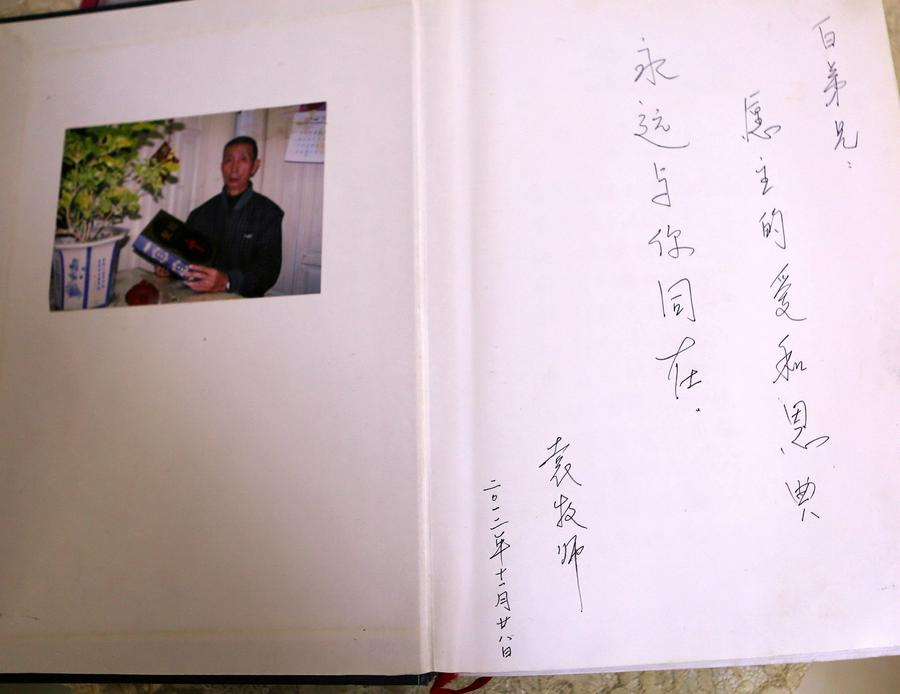 白弟兄：
愿主的爱和恩典
永远与你同在.
袁牧师
二〇一二年十一月廿八日